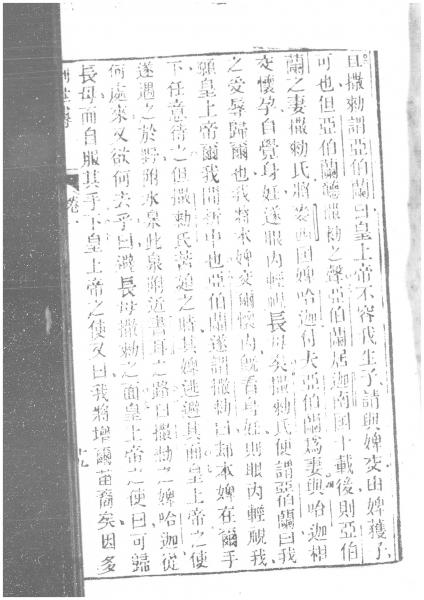 且撒勑謂亞伯蘭曰皇上帝不容我生子請與婢交由婢獲子
可也但亞伯蘭聽撒勑之聲亞伯蘭居迦南國十載後則亞伯
蘭之妻撒勑氏將麥西國婢哈迦付夫亞伯蘭爲妻與哈迦相
交懷孕自覺身妊遂眼內輕視長母矣撒勑氏便謂亞伯蘭曰我
之受辱歸爾也我將本婢交爾懷內旣看身妊則眼內輕覷我
願皇上帝爾我間折中也亞伯蘭遂謂撒勑曰却本婢在爾手
下任意待之但撒勑氏苦逼之時其婢逃避其面皇上帝之使
遂遇之於野附水泉此泉附近書耳之路曰撒勑之婢哈迦從
何處來又欲何去乎曰避長母撒勑之面皇上帝之使曰可歸
長母而自服其手下皇上帝之使又曰我將增爾苗裔矣因多
卷一 十九